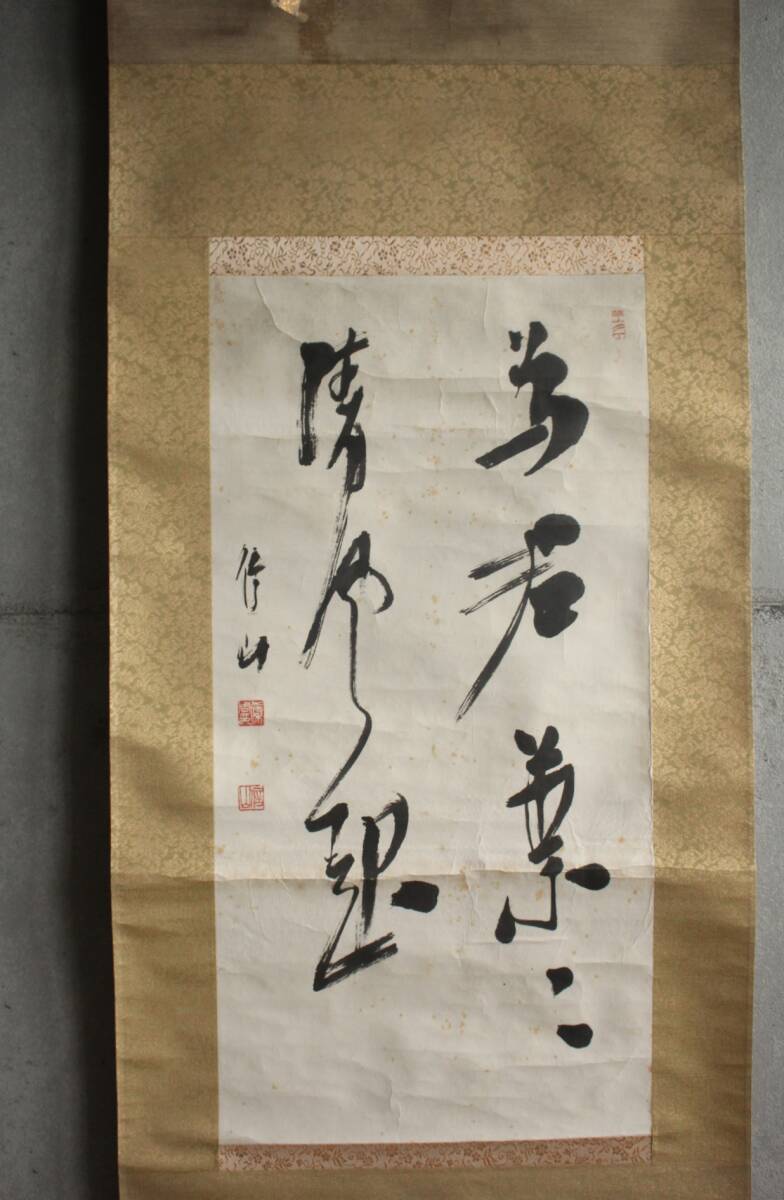 為君葉々
清風起
山